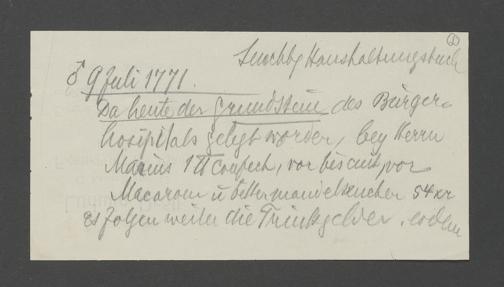 Senckbg Haushaltungsbuch
♂ 9 Juli 1771.
Da heute der Grundstein des Bürger-
hospitals gelegt worden, bey Herrn
Marius 1 ℔ Confect, vor biscuit, vor
Macaron u bittermandelkuchen 54 xr
es folgen weiter die Trinkgelder. eodem